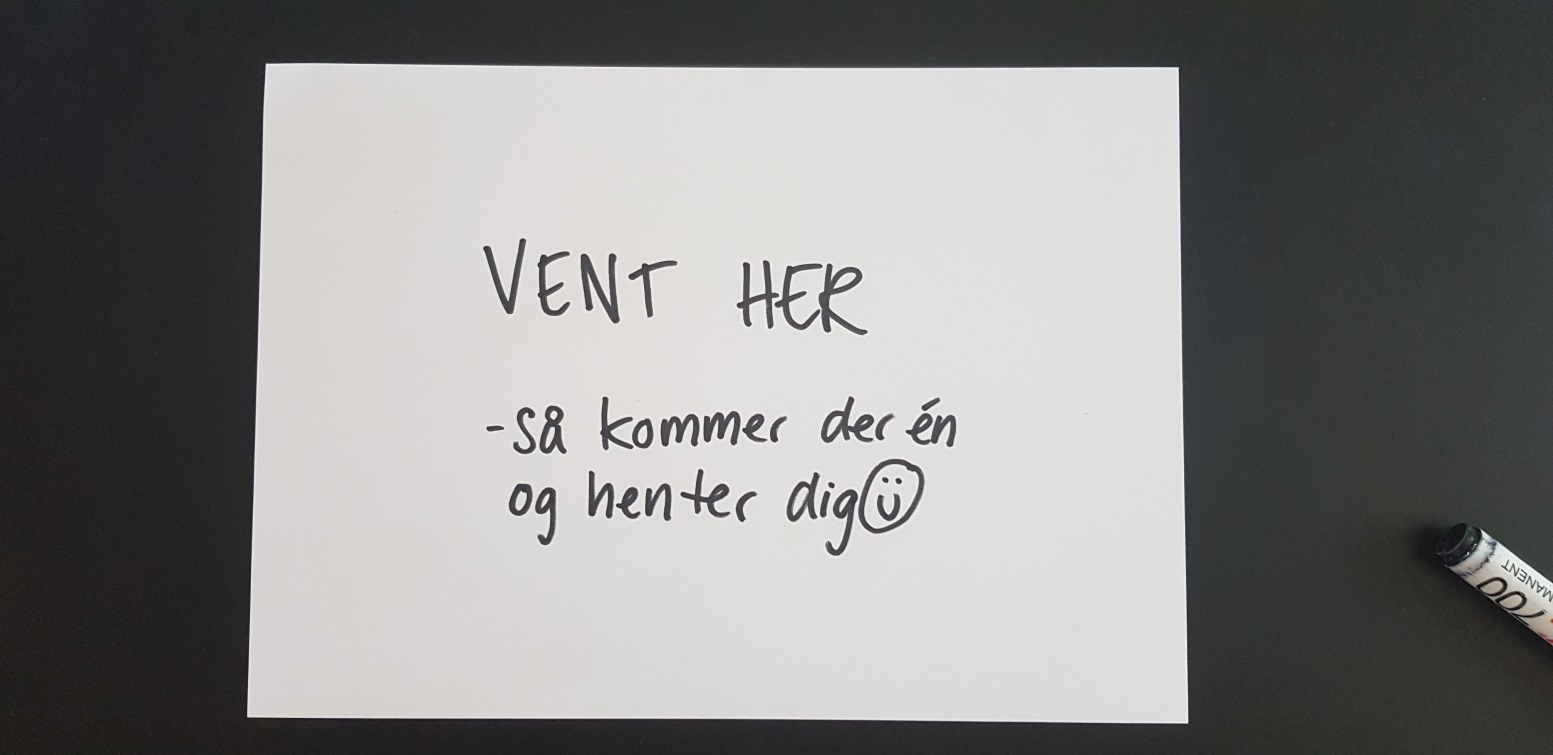 VENT HER
-så kommer der én
og henter dig
700
MANENT